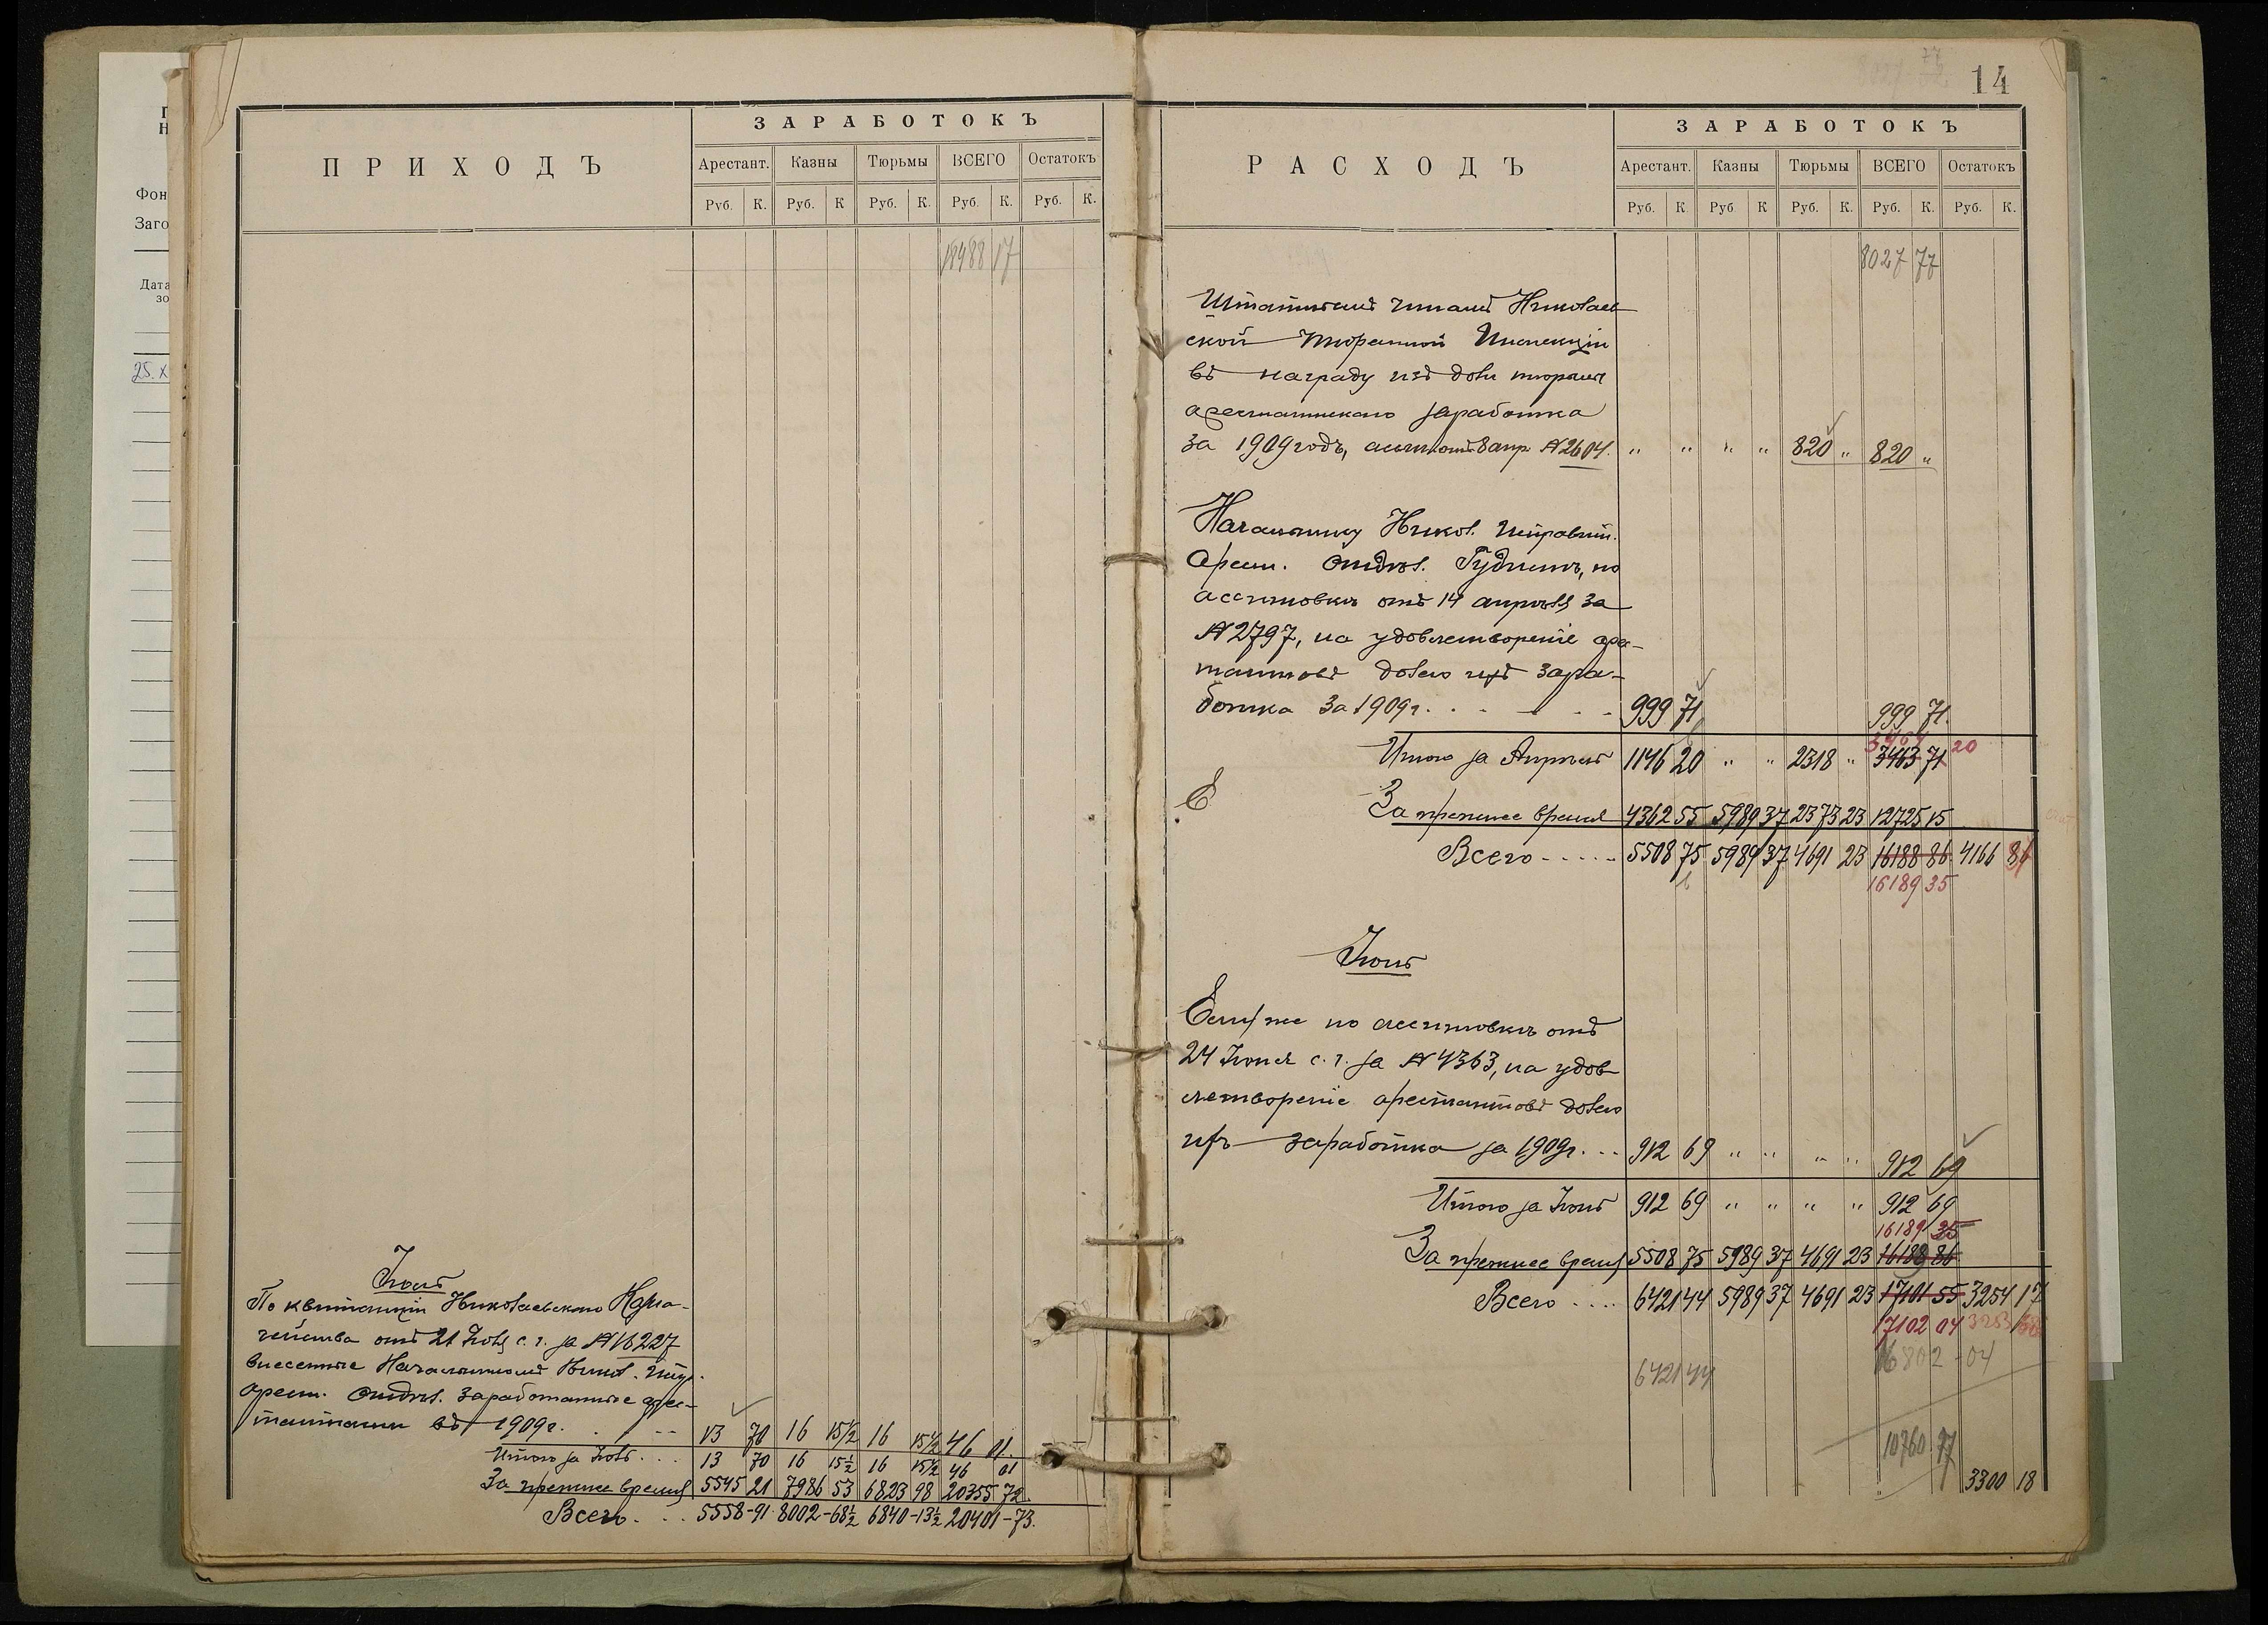 П
Н
Фон
Заго
Дата
зо
25.X
ПРИХОДЪ
ЗАРАБОТОКЪ
Арестант. Казны Тюрьмы ВСЕГО Остатокъ
Руб. К. Руб. К Руб. К. Руб. К. Руб. К.
18488 17
Іюль
По квитанціи Николаевскаго Казна-
чейства отъ 21 Іюля с. г. за №16227
внесенные Начальникомъ Никол. Испр.
арест. отдѣл. заработанные арес-
тантами въ 1909г. . . -- 13 70 16 15½ 16 15½ 46 01.
Итого за Іюль . . . 13 70 16 15½ 16 15½ 46 01
За прежнее время 5545 21 7986 53 6823 98 20355 72.
Всего . . . 5558-91 8002-68½ 6840-13½ 20401-73.
14
РАСХОДЪ
ЗАРАБОТОКЪ
Арестант. Казны Тюрьмы ВСЕГО Остатокъ
Руб. К Руб К Руб. К. Руб. К. Руб. К.
8027 77
Штатнымъ чинамъ Николаев
ской Тюремной Инспекціи
въ награду изъ доли тюрьмы
арестантскаго заработка
за 1909 годъ, ассигн. отъ 8 апр. №2604. " " " " 820 " 820 "
Начальнику Никол. Исправит.
Арест. Отдѣл. Гудимъ, по
ассигновкѣ отъ 14 апрѣля за
№2797, на удовлетвореніе аре-
тантовъ долею изъ зара-
ботка за 1909г. . . - - . - 999 71 999 71.
3464 20
Итого за Апрѣль 1146 20 " " 2318 " 3463 71
За прежнее время 4362 55 5989 37 2373 23 12725 15
Всего - - - - - 5508 75 5989 37 4691 23 16188 86 4166 86
16189 35
Іюнь
Ему же по ассигновкѣ отъ
24 Іюня с. г. за №4363, на удов
летвореніе арестантовъ долею
ихъ заработка за 1909г. . -- 912 69 " " " " 912 69
Итого за Іюнь 912 69 " " " " 912 69
16189 35
За прежнее время 5508 75 5989 37 4691 23 16188 86
Всего . . . . 6421 44 5989 37 4691 23 17101 55 3254 17
17102 04 3253 68
6421 44 16802-04
10760 77
3300 18